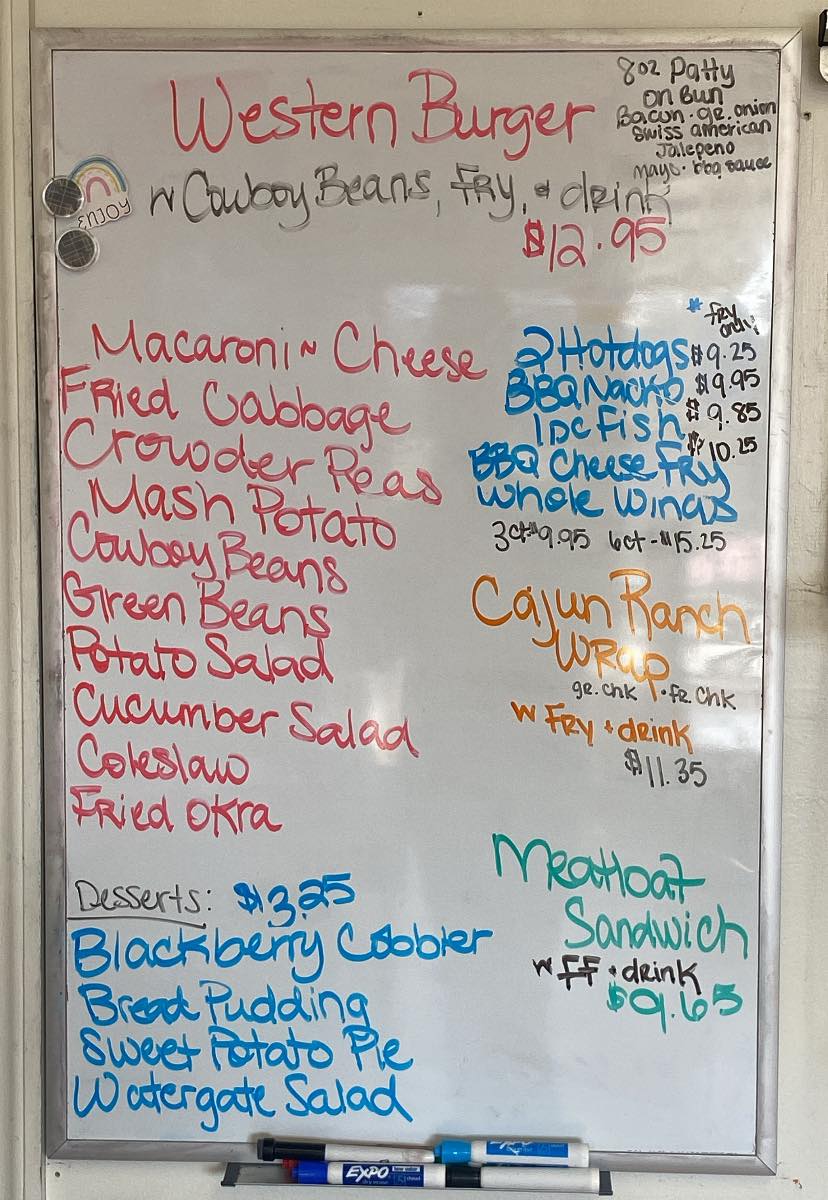 Western Burger
8oz Patty
on Bun
Bacon · gr. onion
Swiss american
Jalepeno
mayo · bbq sauce
ENJOY
w Cowboy Beans, Fry, & drink
$12.95
Macaroni ~ Cheese
Fried Cabbage
Crowder Peas
Mash Potato
Cowboy Beans
Green Beans
Potato Salad
Cucumber Salad
Coleslaw
Fried Okra
Desserts: $3.25
Blackberry Cobbler
Bread Pudding
Sweet Potato Pie
Watergate Salad
* fry
only
2 Hotdogs $9.25
BBQ Nacho $9.95
1pc Fish $9.85
BBQ Cheese Fry $10.25
Whole Wings
3ct-$9.95 6ct-$15.25
Cajun Ranch
Wrap
gr. chk · fr. chk
w Fry + drink
$11.35
Meatloaf
Sandwich
w FF + drink
$9.65
EXPO